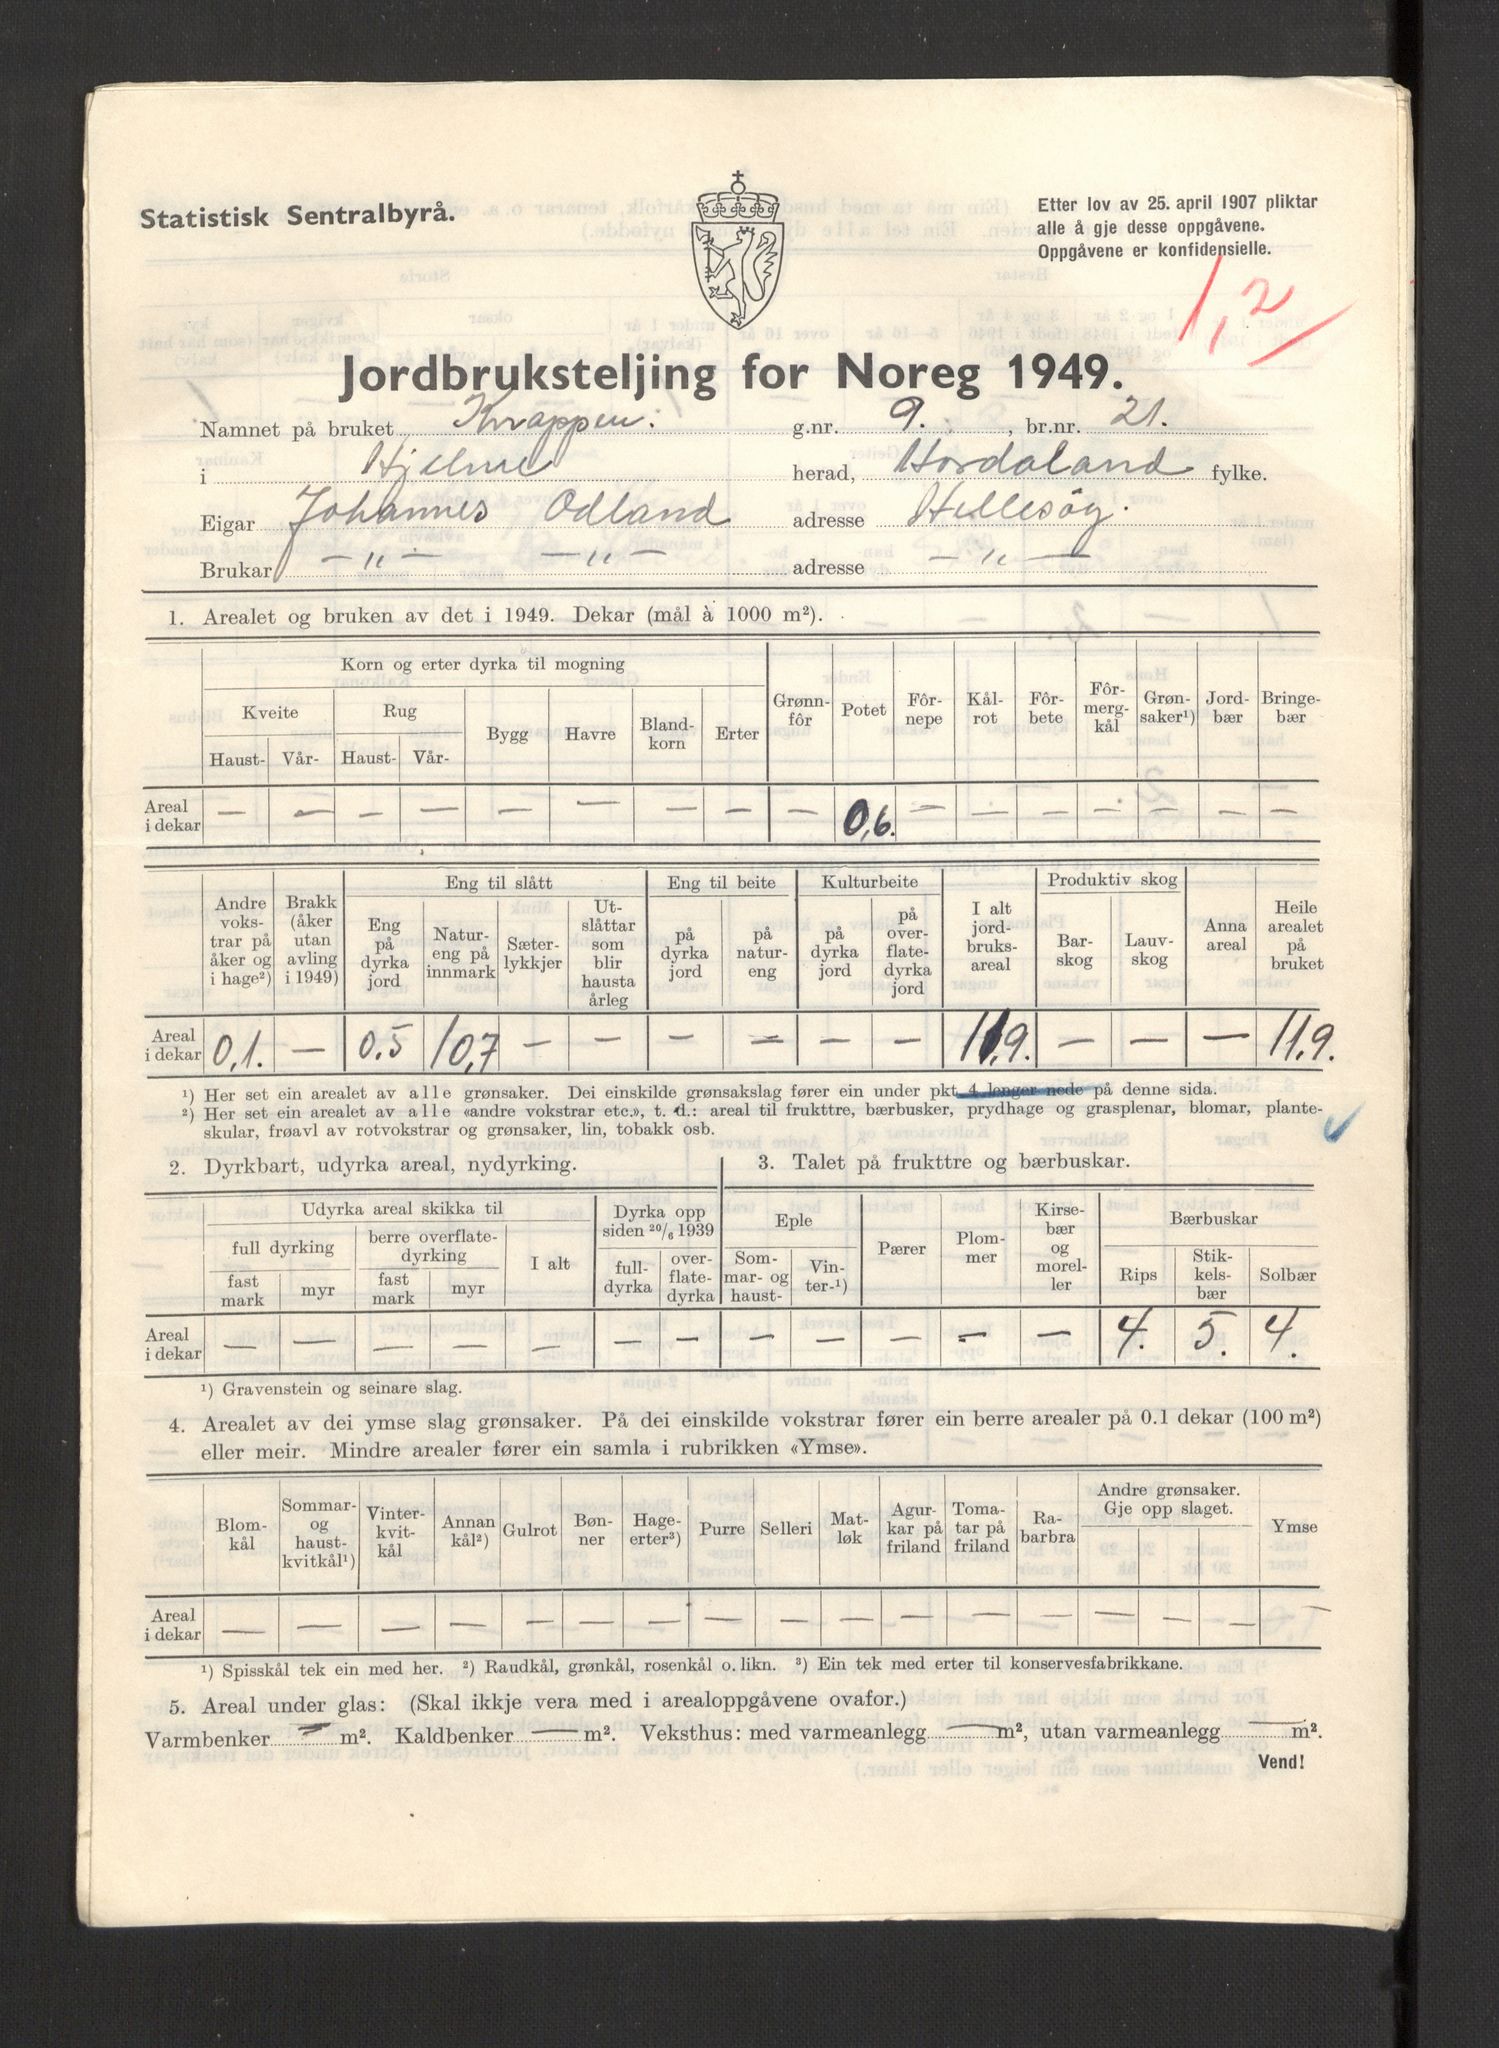 Statistisk Sentralbyrå.
Etter lov av 25. april 1907 pliktar
alle å gje desse oppgåvene.
Oppgåvene er konfidensielle.
1,2
Jordbruksteljing for Noreg 1949.
Namnet på bruket Knappen. g.nr. 9. , br.nr. 21.
i Hjelme herad, Hordaland fylke.
Eigar Johannes Odland adresse Hellesøy.
Brukar — „ — — „ — adresse — „ —
1. Arealet og bruken av det i 1949. Dekar (mål à 1000 m²).
Korn og erter dyrka til mogning
Kveite Rug Bygg Havre Bland-korn Erter Grønn-fôr Potet Fôr-nepe Kål-rot Fôr-bete Fôr-merg-kål Grøn-saker¹) Jord-bær Bringe-bær
Haust- Vår- Haust- Vår-
Areal i dekar — — — — — — — — — 0,6. — — — — — — —
Eng til slått Eng til beite Kulturbeite Produktiv skog
Andre voks-trar på åker og i hage²) Brakk (åker utan avling i 1949) Eng på dyrka jord Natur-eng på innmark Sæter-lykkjer Ut-slåttar som blir hausta årleg på dyrka jord på natur-eng på dyrka jord på over-flate-dyrka jord I alt jord-bruks-areal Bar-skog Lauv-skog Anna areal Heile arealet på bruket
Areal i dekar 0,1. — 0.5 10,7 — — — — — — 11,9. — — — 11,9.
¹) Her set ein arealet av alle grønsaker. Dei einskilde grønsakslag fører ein under pkt. 4 lenger nede på denne sida.
²) Her set ein arealet av alle «andre vokstrar etc.», t. d.: areal til frukttre, bærbusker, prydhage og grasplenar, blomar, plante-
skular, frøavl av rotvokstrar og grønsaker, lin, tobakk osb.
2. Dyrkbart, udyrka areal, nydyrking.
3. Talet på frukttre og bærbuskar.
Udyrka areal skikka til Dyrka opp siden 20/6 1939 Eple Pærer Plom-mer Kirse-bær og morel-ler Bærbuskar
full dyrking berre overflate-dyrking I alt full-dyrka over-flate-dyrka Som-mar- og haust- Vin-ter-¹) Rips Stik-kels-bær Solbær
fast mark myr fast mark myr
Areal i dekar — — — — — — — — — — — — 4. 5. 4.
¹) Gravenstein og seinare slag.
4. Arealet av dei ymse slag grønsaker. På dei einskilde vokstrar fører ein berre arealer på 0.1 dekar (100 m²)
eller meir. Mindre arealer fører ein samla i rubrikken «Ymse».
Blom-kål Sommar- og haust-kvitkål¹) Vinter-kvit-kål Annan kål²) Gulrot Bøn-ner Hage-erter³) Purre Selleri Mat-løk Agur-kar på friland Toma-tar på friland Ra-barbra Andre grønsaker. Gje opp slaget. Ymse
Areal i dekar — — — — — — — — — — — — — — — — —
¹) Spisskål tek ein med her. ²) Raudkål, grønkål, rosenkål o. likn. ³) Ein tek med erter til konservesfabrikkane.
5. Areal under glas: (Skal ikkje vera med i arealoppgåvene ovafor.)
Varmbenker — m². Kaldbenker — m². Veksthus: med varmeanlegg — m², utan varmeanlegg — m².
Vend!